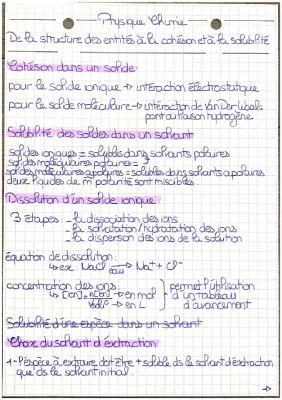 Physique Chimie
De la structure des entités à la cohésion et à la solubilité
Cohésion dans un solide
pour le solide ionique → interaction électrostatique
pour le solide moléculaire → interaction de Van Der Waals
pont ou liaison hydrogène
Solubilité des solides dans un solvant
solides ioniques = solubles dans solvants polaires
solides moléculaires polaires =
solides moléculaires apolaires = solubles dans solvants apolaires
deux liquides de m̂ polarité sont miscibles.
Dissolution d'un solide ionique
3 étapes - la dissociation des ions
- la solvatation/hydratation des ions
- la dispersion des ions de la solution
équation de dissolution:
↳ ex: NaCl →eau Na+ + Cl-
concentration des ions } permet l'utilisation
↳ [ion] = n(ion) → en mol d'un tableau
Vsol° → en L d'avancement
Solubilité d'une espèce dans un solvant
Choix du solvant d'extraction
1 - l'espèce à extraire doit être + soluble ds le solvant d'extraction
que ds le solvant initial.
→